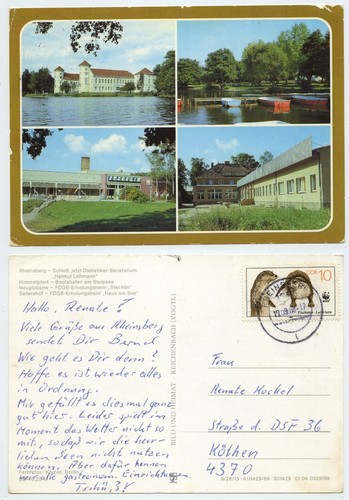 Rheinsberg – Schloß, jetzt Diabetiker-Sanatorium
„Helmut Lehmann"
Himmelpfort – Bootshafen am Stolpsee
Neuglobsow – FDGB-Erholungsheim „Stechlin"
Seilershof – FDGB-Erholungsheim „Haus am See"
Hallo, Renate!
Viele Grüße aus Rheinsberg
sendet Dir Bernd
Wie geht es Dir denn?
Hoffe es ist wieder alles
in Ordnung.
Mir gefällt es diesmal ganz
gut hier. Leider spielt im
Moment das Wetter nicht so
mit, sodaß wir die herr-
lichen Seen nicht nutzen
können. Aber dafür kennen
wir alle gastronom. Einrichtungen.
Tschü,ß!
BILD UND HEIMAT REICHENBACH (VOGTL)
DDR 10
Frau
Renate Kockel
Straße d. DSF 36
Köthen
4370